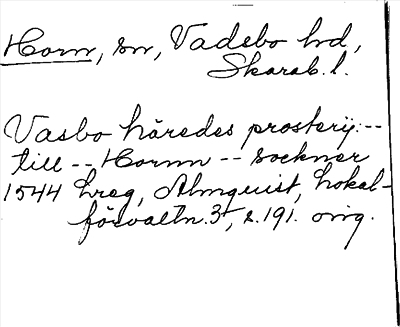 Horn, sn, Vadsbo hd,
Skarab. l.
Vasbo häredes prosterij:--
till -- Hornn -- sockner
1544 Lreg, Almquist, Lokal-
förvaltn. 3, s. 191. orig.